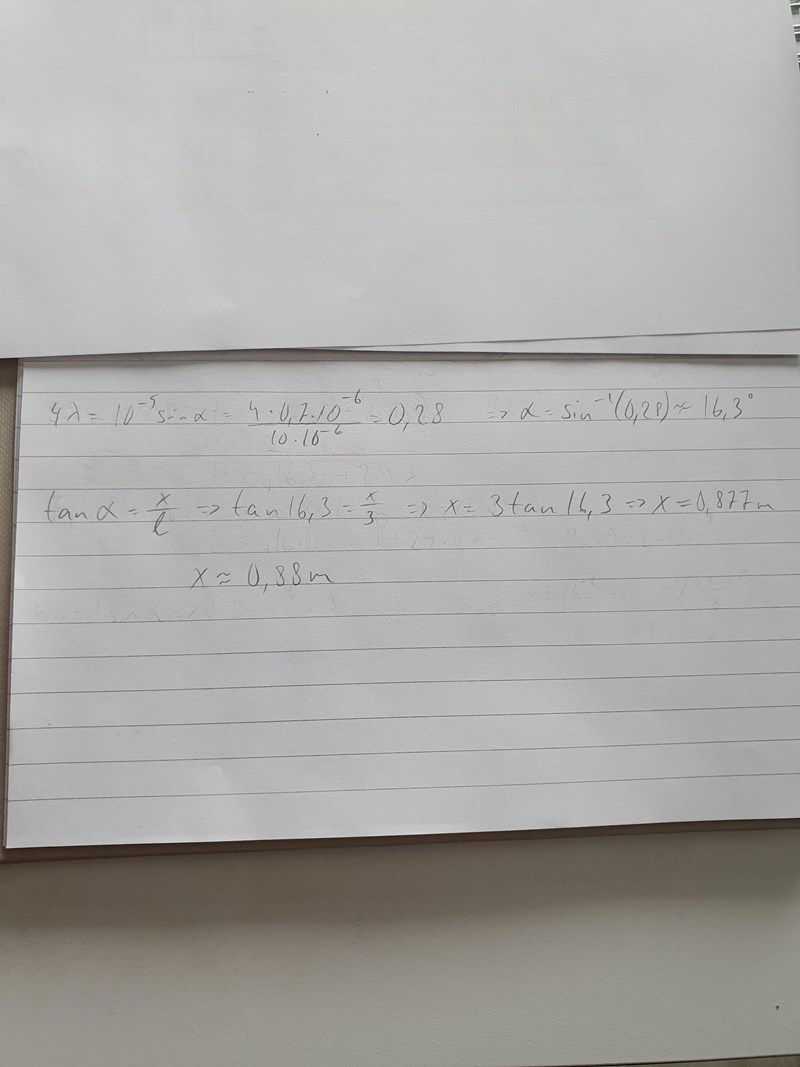 4λ = 10⁻⁵ sin α = (4 · 0,7 · 10⁻⁶)/(10 · 10⁻⁶) = 0,28 => α = sin⁻¹(0,28) ≈ 16,3°
tan α = x/l => tan 16,3 = x/3 => x = 3 tan 16,3 => x = 0,877 m
x ≈ 0,88 m